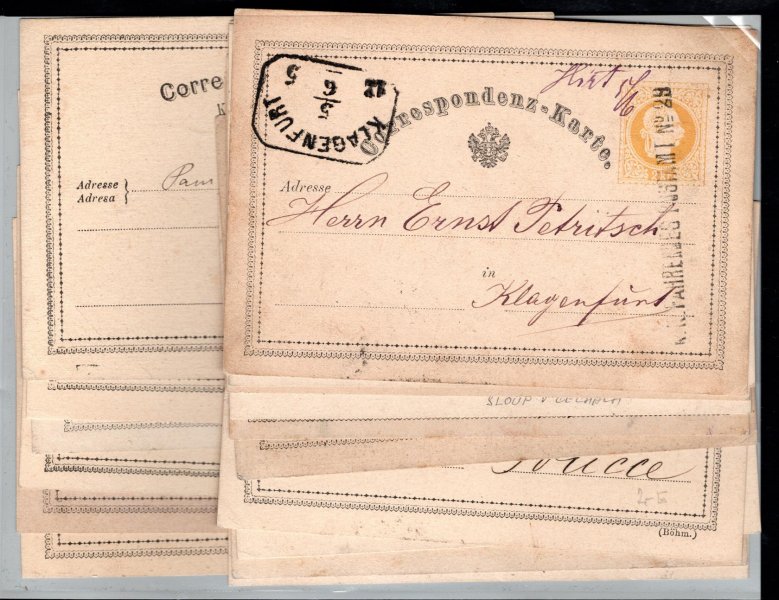 Corre
K
Adresse
Adresa
Hüt 5/6
Correspondenz-Karte.
KLAGENFURT
5/6
12
5
K.K. FAHRENDES POSTAMT Nº 29
Adresse
Herrn Ernst Petritsch
in
Klagenfurt
SLOUP V ČECHÁCH
(Böhm.)